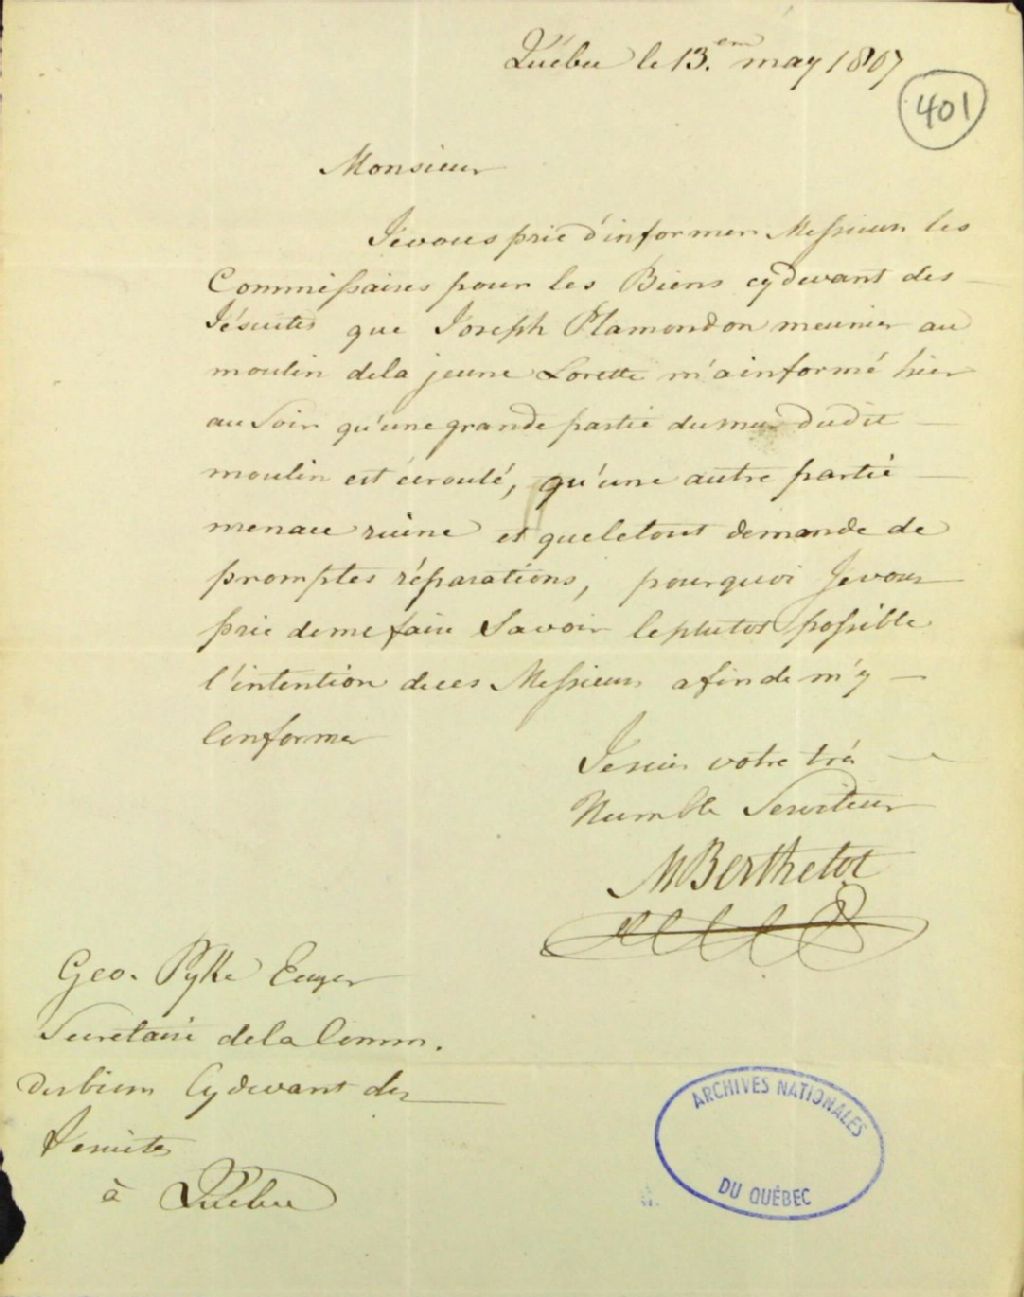 Québec le 13.em may 1807
401
Monsieur
Jevous prie d'informer Messieurs les
Commissaires pour les Biens cydevant des
Jésuites que Joseph Plamondon meunier au
moulin dela jeune Lorette m'a informé hier
au Soir qu'une grande partie du mur dudit
moulin est écroulé, qu'une autre partie
menace ruine et queletout demande de
promptes réparations, pourquoi Jevous
prie deme faire Savoir leplutot possible
l'intention deces Messieurs afin de m'y
Conformer
Jesuis votre très
Humble Serviteur
MBerthelot
Geo. Pyke Ecuyer
Secretaire dela Comm.
des biens Cydevant des
Jesuites
à Québec
ARCHIVES NATIONALES
DU QUÉBEC